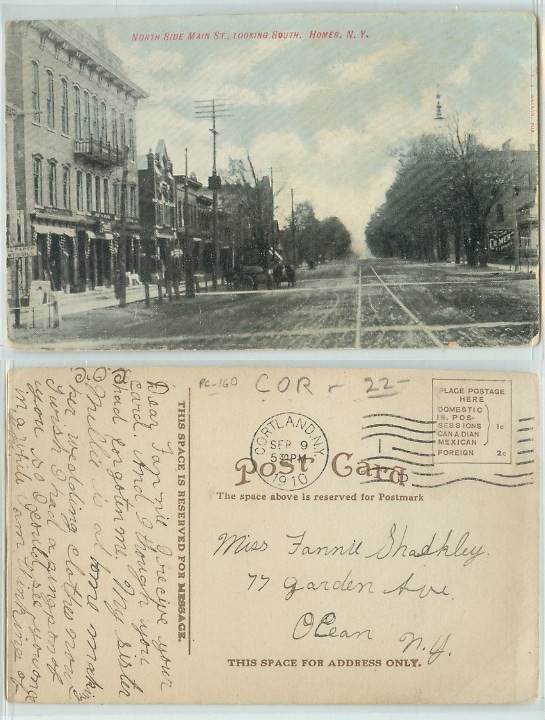 North Side Main St., Looking South, Homer, N. Y.
PC-160
COR - 22-
PLACE POSTAGE
HERE
DOMESTIC
IS. POS-
SESSIONS
CANADIAN
MEXICAN
1c
FOREIGN 2c
CORTLAND, N.Y.
SEP 9
530PM
1910
1
Post Card
The space above is reserved for Postmark
THIS SPACE IS RESERVED FOR MESSAGE.
Dear Fannie I receive your
card. And I though you
had forgotten me. My Sister
Millie is at home making
her wedding clothes now
I wish I had a pinspon of
you so I could see you once
in a while I am thinking of
Miss Fannie Shadkley.
77 Garden Ave.
Olean N.Y.
THIS SPACE FOR ADDRESS ONLY.